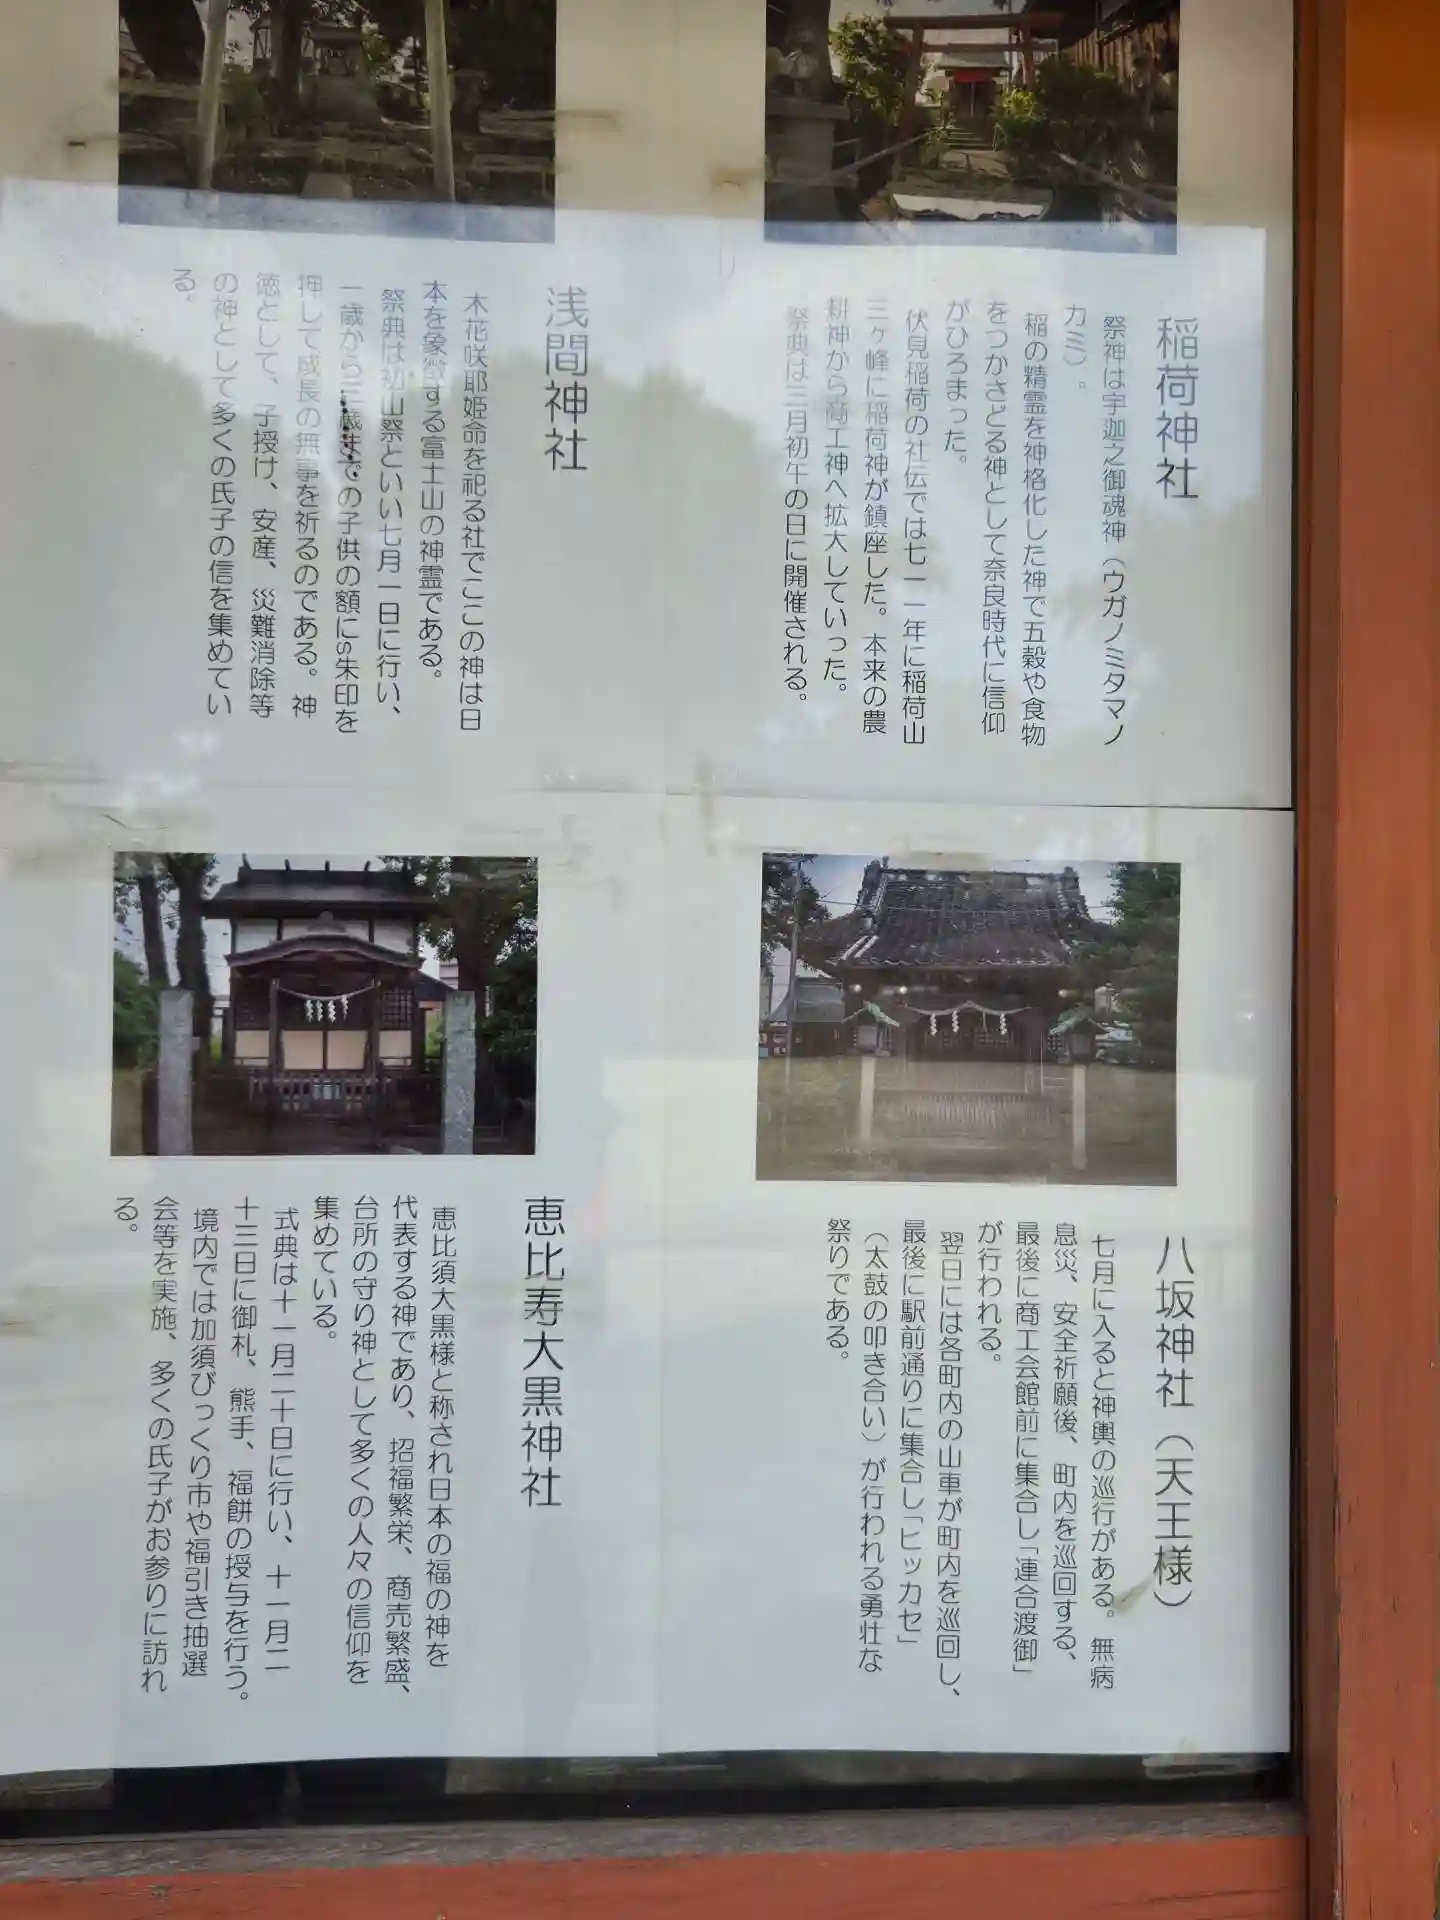 稲荷神社
祭神は宇迦之御魂神（ウガノミタマノ
カミ）。
稲の精霊を神格化した神で五穀や食物
をつかさどる神として奈良時代に信仰
がひろまった。
伏見稲荷の社伝では七一一年に稲荷山
三ヶ峰に稲荷神が鎮座した。本来の農
耕神から商工神へ拡大していった。
祭典は三月初午の日に開催される。
浅間神社
木花咲耶姫命を祀る社でここの神は日
本を象徴する富士山の神霊である。
祭典は初山祭といい七月一日に行い、
一歳から三歳までの子供の額にs朱印を
押して成長の無事を祈るのである。神
徳として、子授け、安産、災難消除等
の神として多くの氏子の信を集めてい
る。
八坂神社（天王様）
七月に入ると神輿の巡行がある。無病
息災、安全祈願後、町内を巡回する、
最後に商工会館前に集合し「連合渡御」
が行われる。
翌日には各町内の山車が町内を巡回し、
最後に駅前通りに集合し「ヒッカセ」
（太鼓の叩き合い）が行われる勇壮な
祭りである。
恵比寿大黒神社
恵比須大黒様と称され日本の福の神を
代表する神であり、招福繁栄、商売繁盛、
台所の守り神として多くの人々の信仰を
集めている。
式典は十一月二十日に行い、十一月二
十三日に御札、熊手、福餅の授与を行う。
境内では加須びっくり市や福引き抽選
会等を実施、多くの氏子がお参りに訪れ
る。